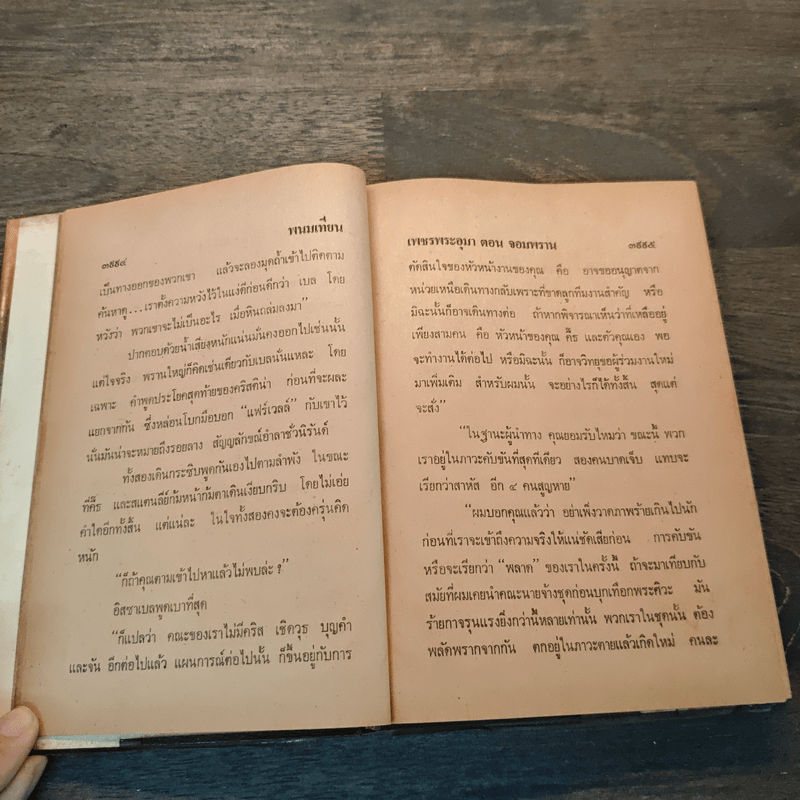 พนมเทียน
๓๙๙๔
เป็นทางออกของพวกเขา แล้วจะลองมุดถ้ำเข้าไปติดตาม
ค้นหาดู...เราตั้งความหวังไว้ในแง่ดีก่อนดีกว่า เบล โดย
หวังว่า พวกเขาจะไม่เป็นอะไร เมื่อหินถล่มลงมา”
ปากตอบด้วยน้ำเสียงหนักแน่นมั่นคงออกไปเช่นนั้น
แต่ใจจริง พรานใหญ่ก็คิดเช่นเดียวกับเบลนั่นแหละ โดย
เฉพาะ คำพูดประโยคสุดท้ายของคริสตินา ก่อนที่จะผละ
แยกจากกัน ซึ่งหล่อนโบกมือบอก “แฟร์เวลล์” กับเขาไว้
นั่นมันน่าจะหมายถึงรอยลาง สัญญลักษณ์อำลาชั่วนิรันด์
ทั้งสองเดินกระซิบพูดกันเองไปตามลำพัง ในขณะ
ที่คี๊ธ และสแตนลีย์ก้มหน้าก้มตาเดินเงียบกริบ โดยไม่เอ่ย
คำใดอีกทั้งสิ้น แต่แน่ละ ในใจทั้งสองคงจะต้องครุ่นคิด
หนัก
“ก็ถ้าคุณตามเข้าไปหาแล้วไม่พบล่ะ ?”
อิสซาเบลพูดเบาที่สุด
“ก็แปลว่า คณะของเราไม่มีคริส เชิดวุธ บุญคำ
และจัน อีกต่อไปแล้ว แผนการณ์ต่อไปนั้น ก็ขึ้นอยู่กับการ
เพชรพระอุมา ตอน จอมพราน ๓๙๙๕
ตัดสินใจของหัวหน้างานของคุณ คือ อาจขออนุญาตจาก
หน่วยเหนือเดินทางกลับเพราะที่ขาดลูกทีมงานสำคัญ หรือ
มิฉะนั้นก็อาจเดินทางต่อ ถ้าหากพิจารณาเห็นว่าที่เหลืออยู่
เพียงสามคน คือ หัวหน้าของคุณ คี๊ธ และตัวคุณเอง พอ
จะทำงานได้ต่อไป หรือมิฉะนั้น ก็อาจวิทยุขอผู้ร่วมงานใหม่
มาเพิ่มเติม สำหรับผมนั้น จะอย่างไรก็ได้ทั้งสิ้น สุดแต่
จะสั่ง”
“ในฐานะผู้นำทาง คุณยอมรับไหมว่า ขณะนี้ พวก
เราอยู่ในภาวะคับขันที่สุดทีเดียว สองคนบาดเจ็บ แทบจะ
เรียกว่าสาหัส อีก ๔ คนสูญหาย”
“ผมบอกคุณแล้วว่า อย่าเพิ่งวาดภาพร้ายเกินไปนัก
ก่อนที่เราจะเข้าถึงความจริงให้แน่ชัดเสียก่อน การคับขัน
หรือจะเรียกว่า “พลาด” ของเราในครั้งนี้ ถ้าจะมาเทียบกับ
สมัยที่ผมเคยนำคณะนายจ้างชุดก่อนบุกเทือกพระศิวะ มัน
ร้ายกาจรุนแรงยิ่งกว่านี้หลายเท่านั้น พวกเราในชุดนั้น ต้อง
พลัดพรากจากกัน ตกอยู่ในภาวะตายแล้วเกิดใหม่ คนละ